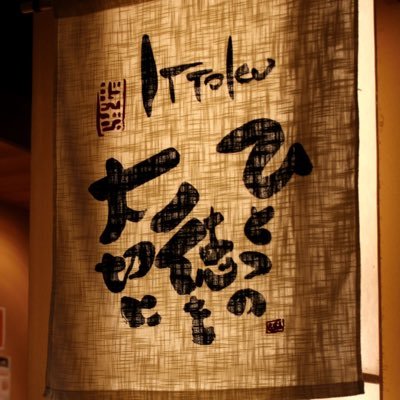 ITToku
ひとつの
徳を
大切に